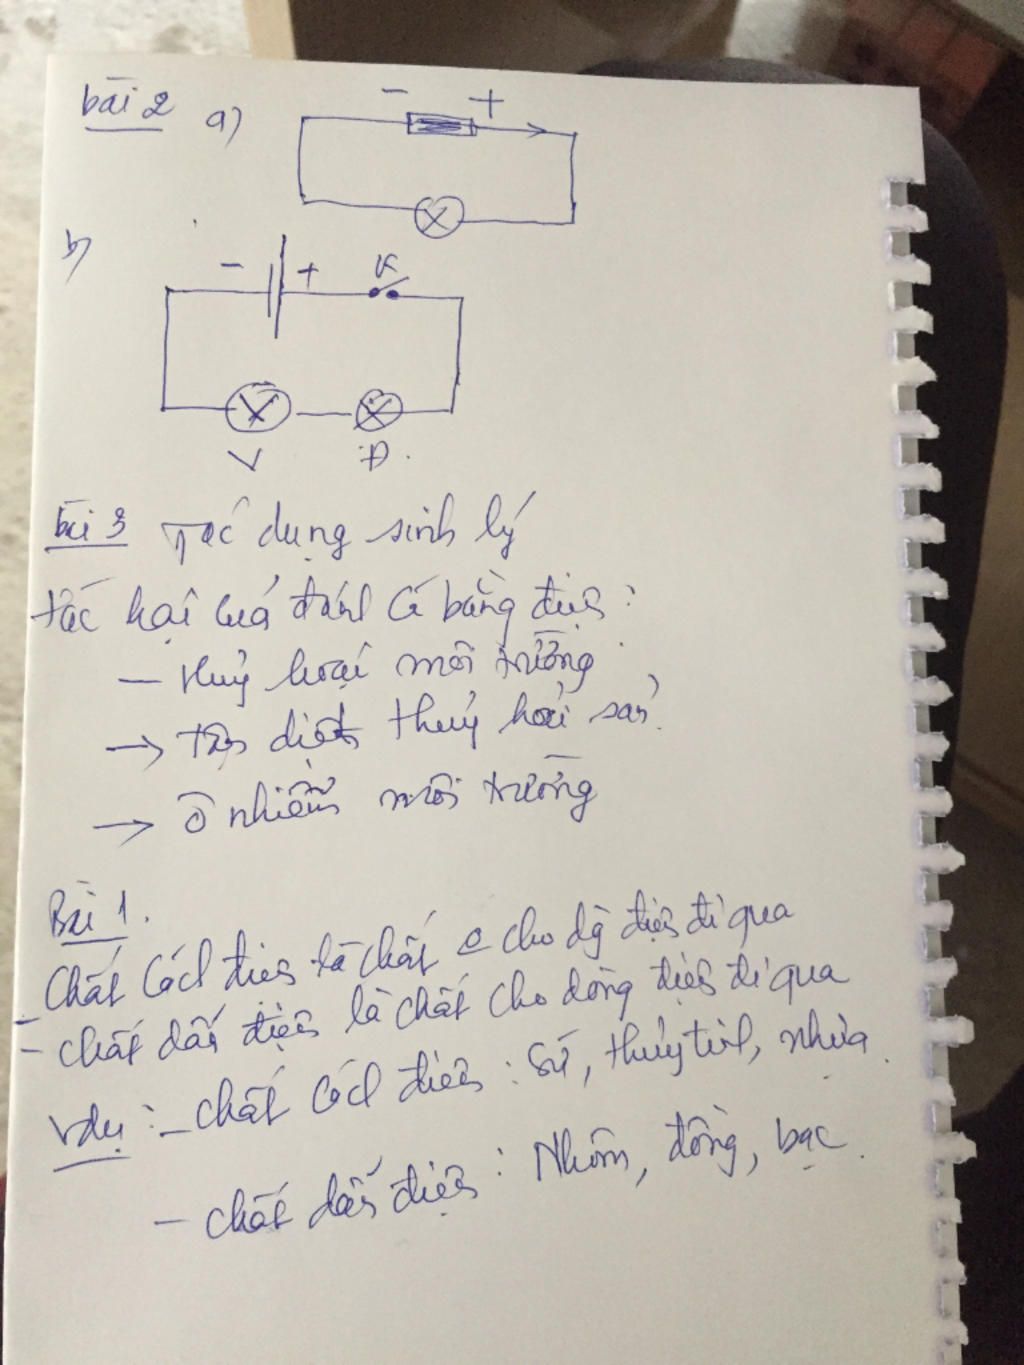 bài 2 a) - +
b) - + K
V Đ.
bài 3 Tác dụng sinh lý
tác hại của đánh cá bằng điện :
- Huỷ hoại môi trường
→ tận diệt thuỷ hải sản.
→ ô nhiễm môi trường
Bài 1.
- Chất cách điện là chất cho dg điện đi qua
- Chất dẫn điện là chất cho dòng điện đi qua
Vdụ : - Chất cách điện : Sứ, thuỷ tinh, nhựa.
- Chất dẫn điện : Nhôm, đồng, bạc.